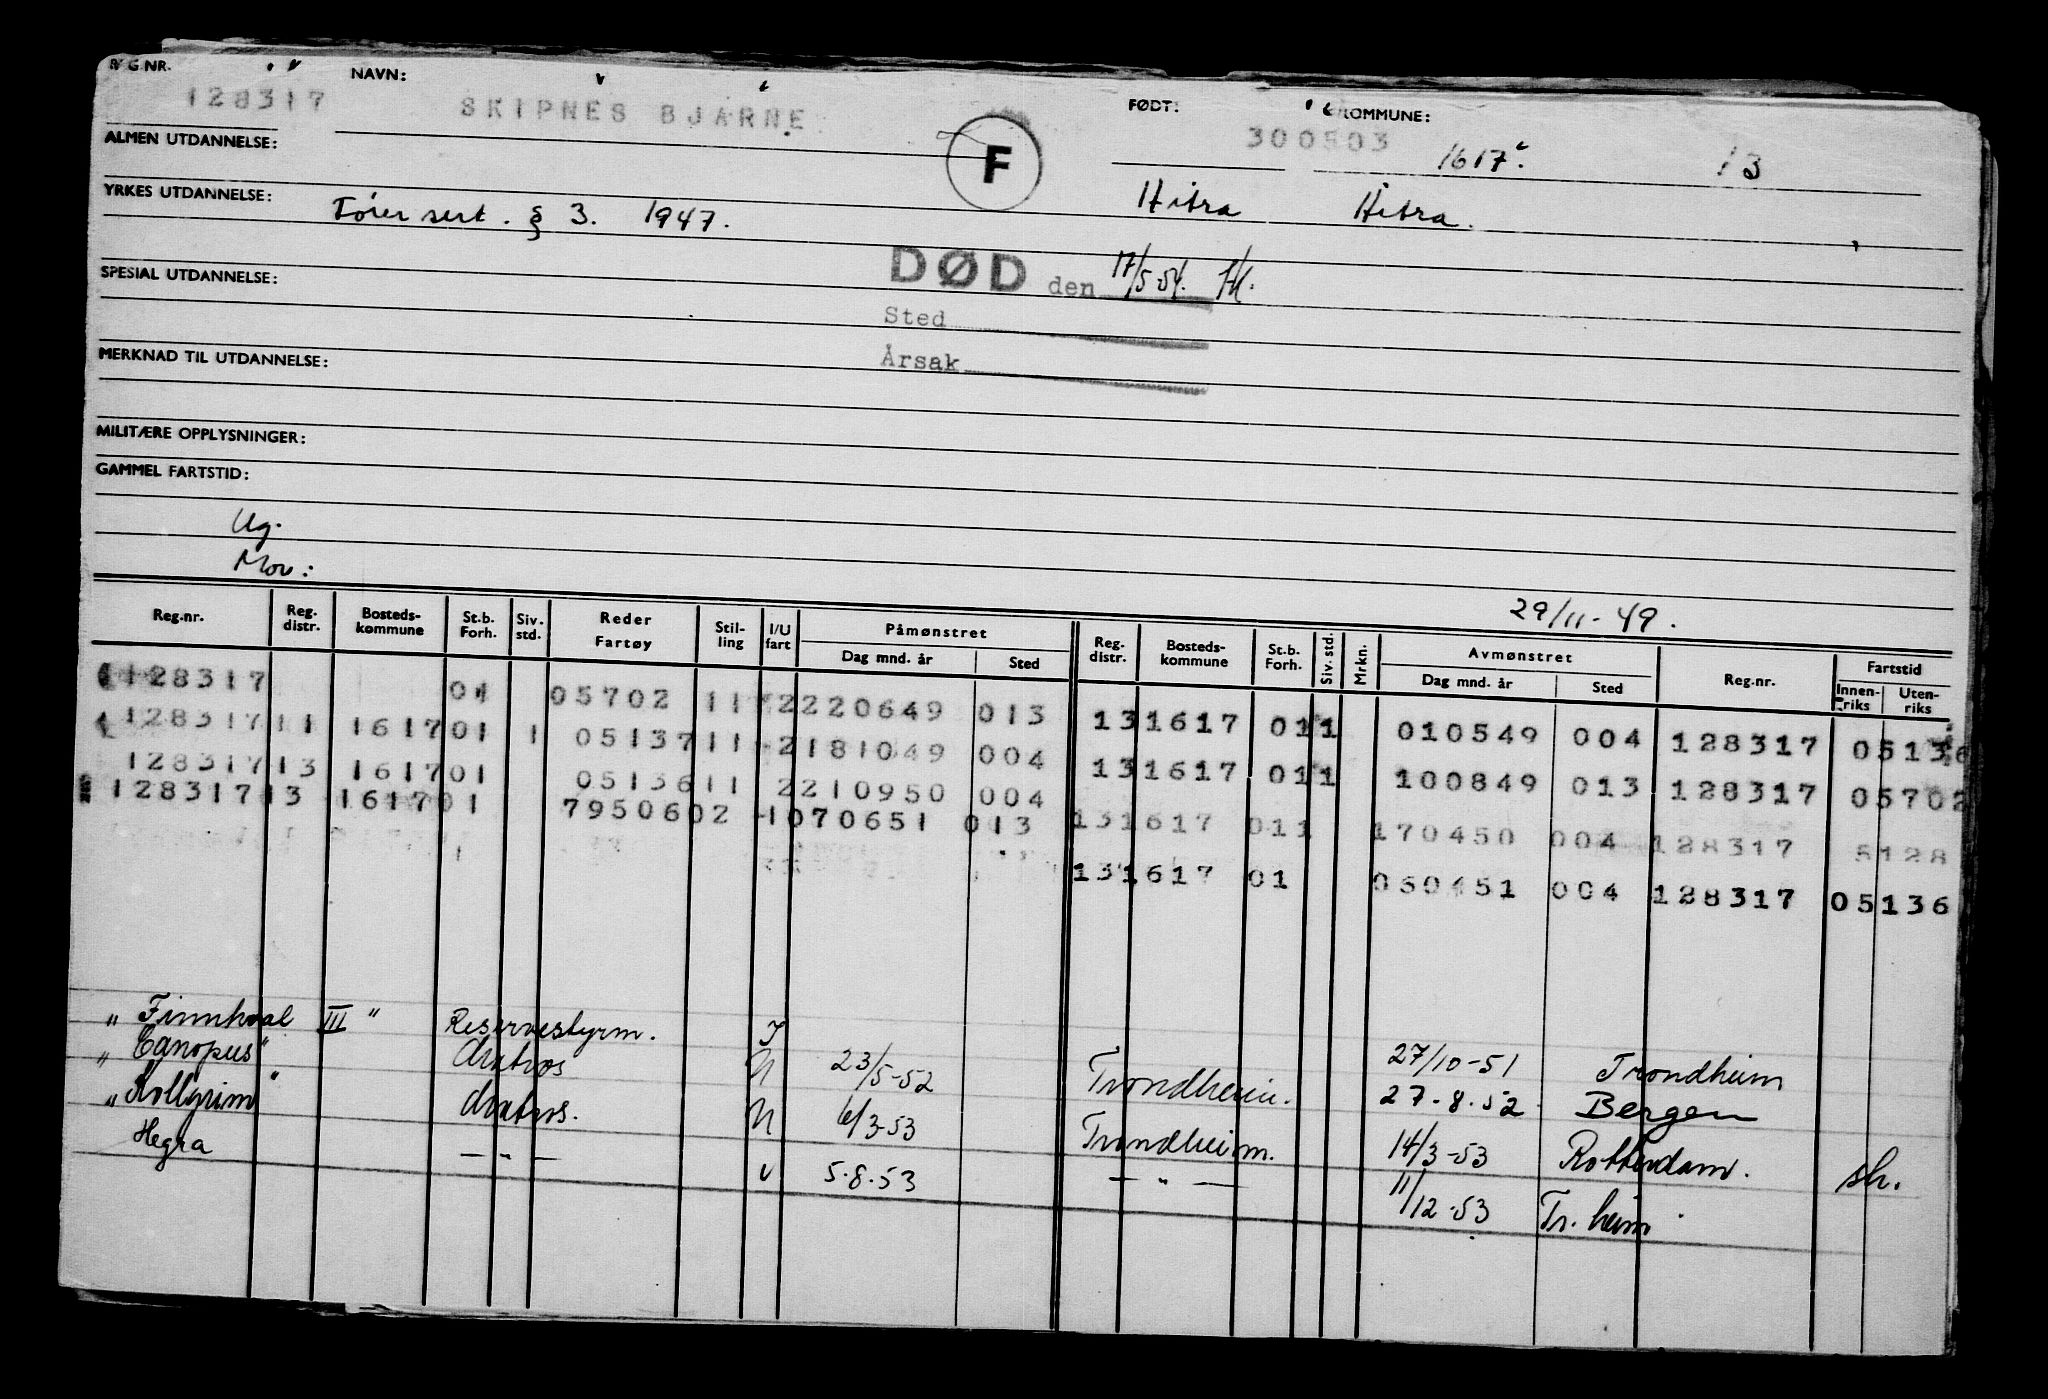 REG NR. NAVN: FØDT: KOMMUNE:
128317 SKIPNES BJARNE 300503 1617 13
ALMEN UTDANNELSE: F
YRKES UTDANNELSE: Hitra Hitra.
sert. § 3. 1947.
DØD den 17/5-54.
SPESIAL UTDANNELSE:
Sted
MERKNAD TIL UTDANNELSE:
Årsak
MILITÆRE OPPLYSNINGER:
GAMMEL FARTSTID:
Ug.
Mov:
29/11-49.
Reg.nr. Reg. distr. Bosteds-kommune St.b. Forh. Siv. std. Reder Fartøy Stil-ling I/U fart Påmønstret Dag mnd. år Sted Reg. distr. Bosteds-kommune St.b. Forh. Siv. std. Mrkn. Avmønstret Dag mnd. år Sted Reg.nr. Fartstid Innen-riks Uten-riks
128317 04 05702 11 2 220649 013 13 1617 01 1 010549 004 128317 05136
128317 11 1617 01 1 05137 11 2 181049 004 13 1617 01 1 100849 013 128317 05702
128317 13 1617 01 05136 11 2 210950 004 13 1617 01 1 170450 004 128317 5128
128317 13 1617 01 79506 02 1 070651 013 13 1617 01 060451 004 128317 05136
„Finnhval III" Reservestyrm. I 27/10-51 Trondheim
„Canopus" Matros U 23/5-52 Trondheim. 27-8.52 Bergen
„Kollgrim" Matros. U 6/3-53 Trondheim. 14/3-53 Rotterdam. sh.
Hegra — " — U 5.8.53 — " — 11/12-53 Tr.heim